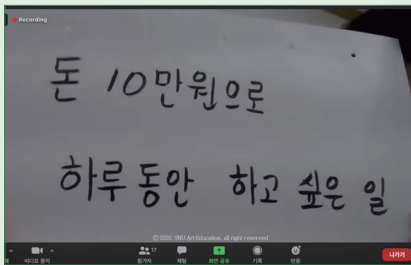 Recording
돈 10만원으로
하루 동안 하고 싶은 일
© 2020. SMU Art Education. all right reserved
비디오 중지
17
참가자
채팅
화면 공유
기록
반응
나가기